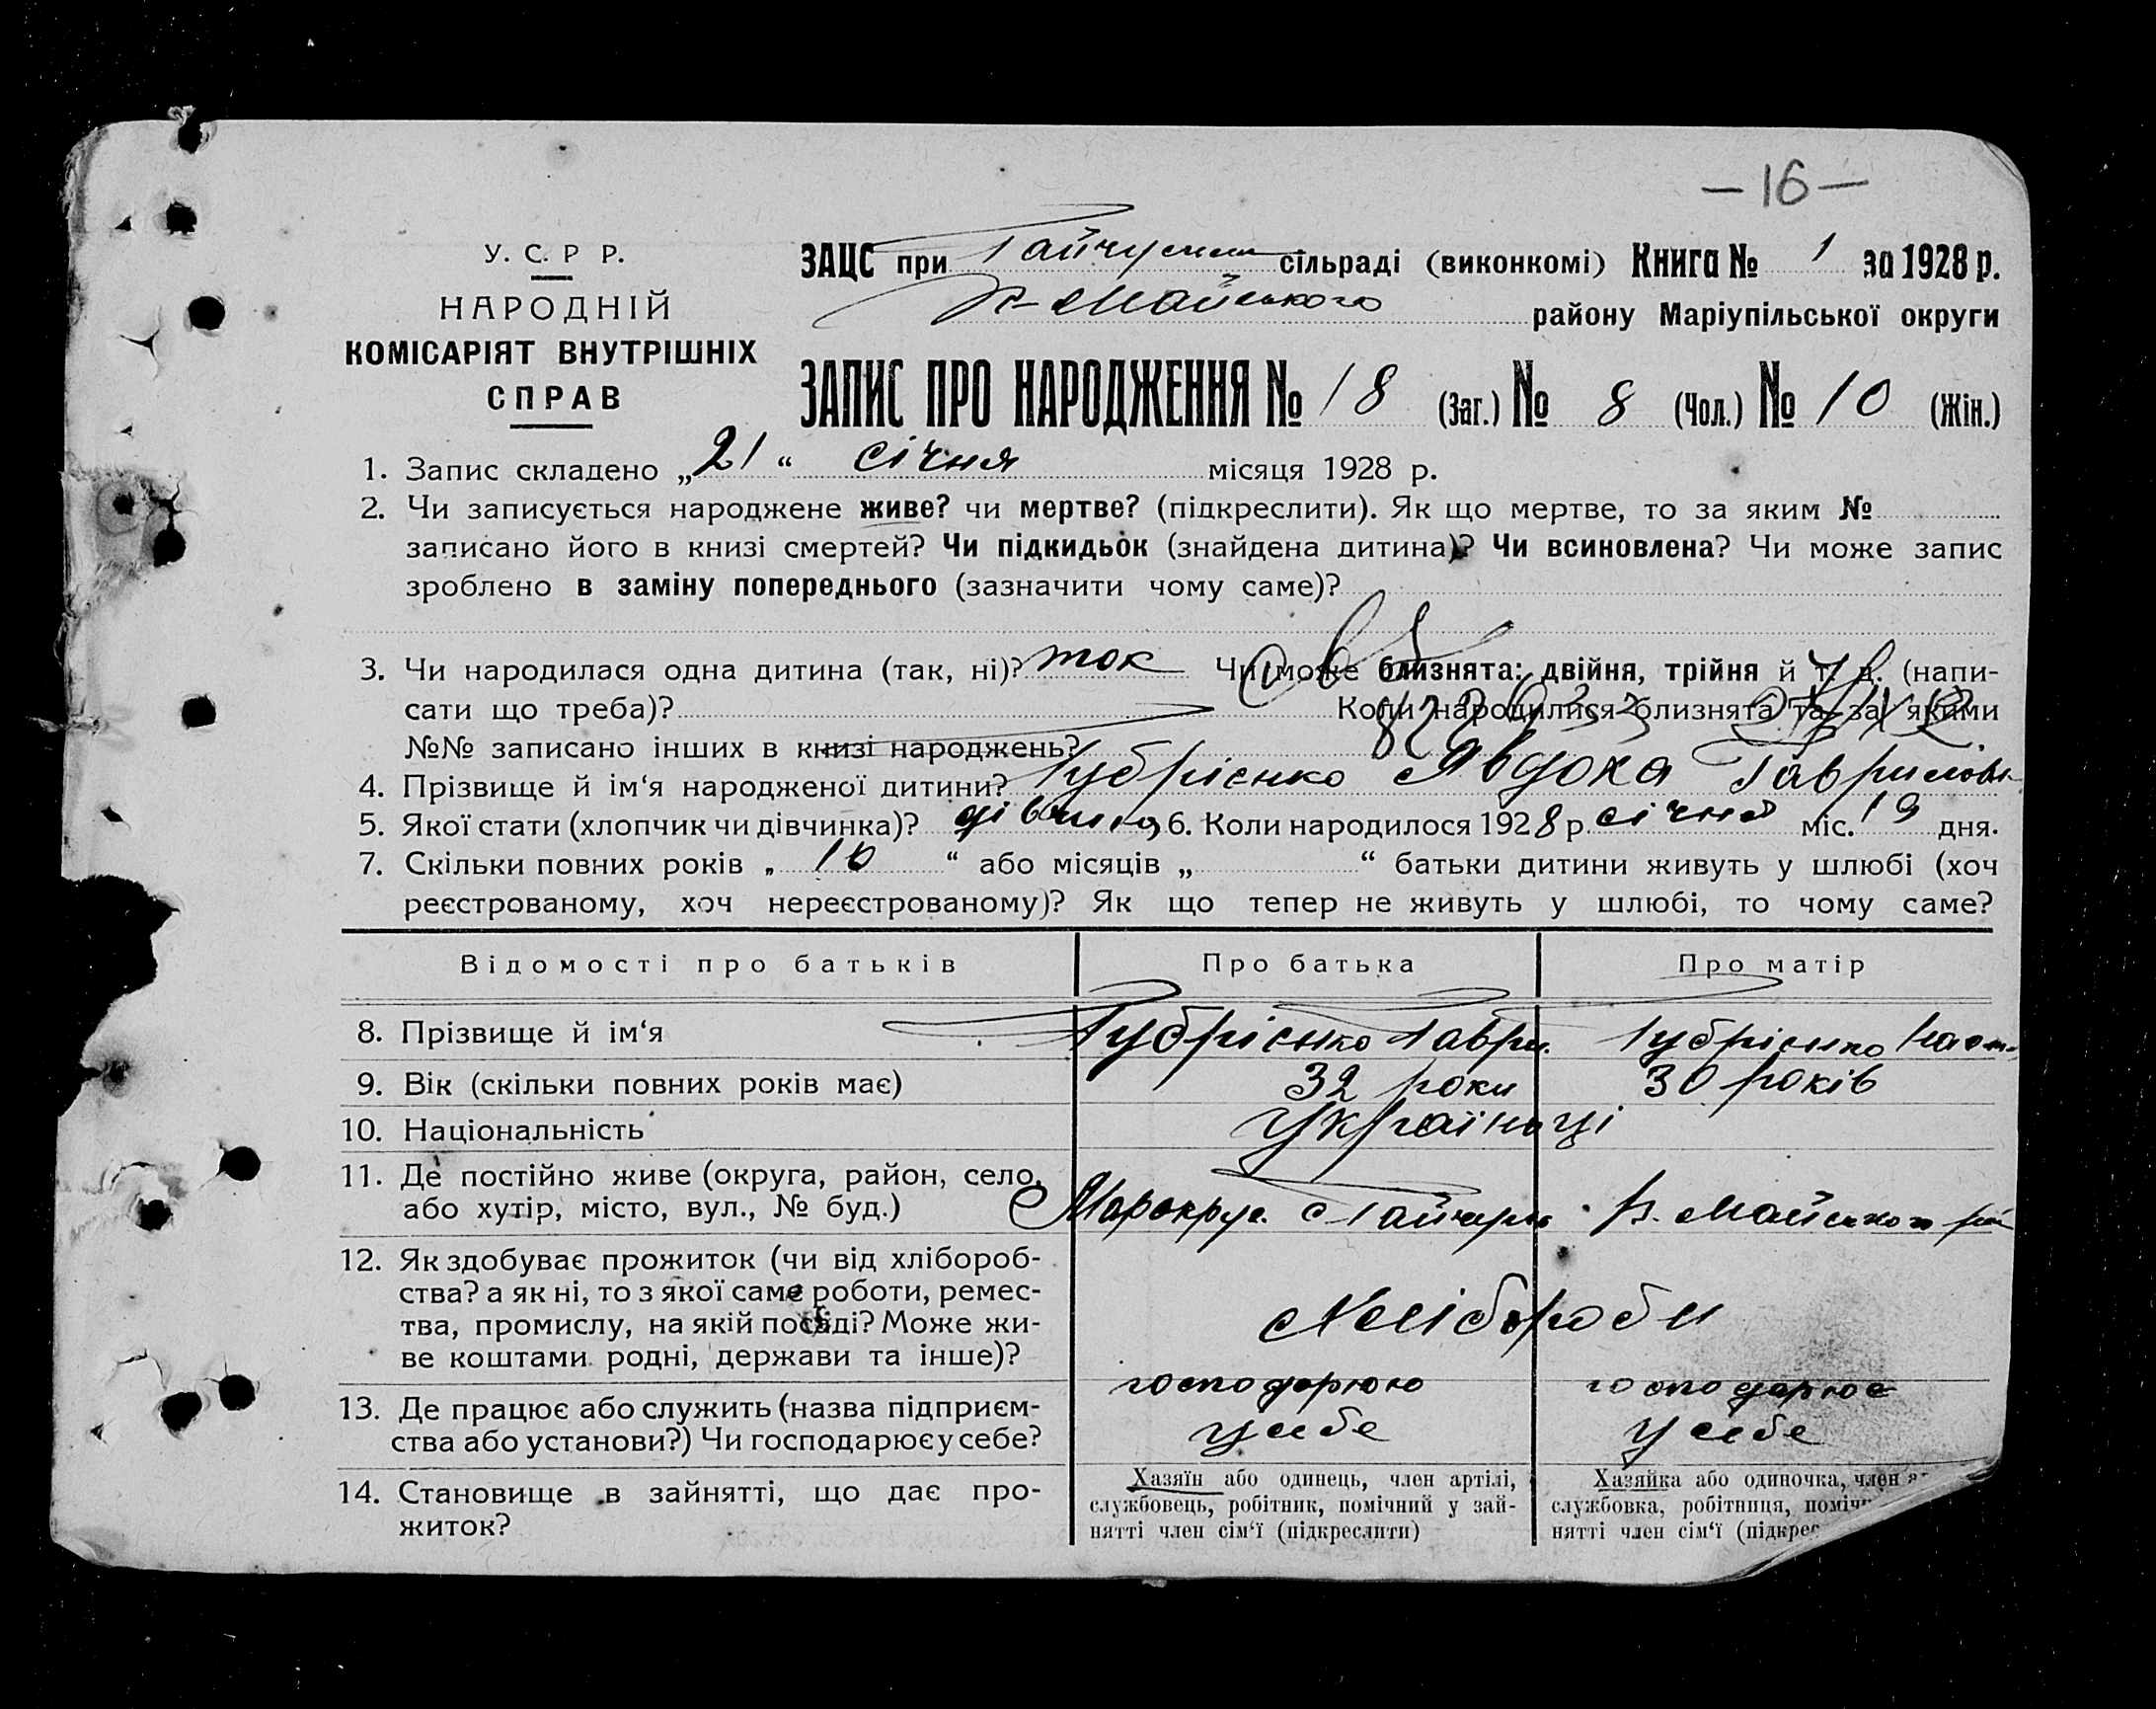 —16—
У. С. Р Р.
НАРОДНІЙ
КОМІСАРІЯТ ВНУТРІШНІХ
СПРАВ
ЗАЦС при сільраді (виконкомі) Книга № 1 за 1928 р.
району Маріупільської округи
ЗАПИС ПРО НАРОДЖЕННЯ № 18 (Заг.) № 8 (Чол.) № 10 (Жін.)
1. Запис складено „21“ січня місяця 1928 р.
2. Чи записується народжене живе? чи мертве? (підкреслити). Як що мертве, то за яким №
записано його в книзі смертей? Чи підкидьок (знайдена дитина)? Чи всиновлена? Чи може запис
зроблено в заміну попереднього (зазначити чому саме)?
3. Чи народилася одна дитина (так, ні)? так Чи може близнята: двійня, трійня й т. д. (напи-
сати що треба)? Коли народилися близнята та за якими
№№ записано інших в книзі народжень?
4. Прізвище й ім‘я народженої дитини? Губрієнко Явдоха Гаврилов
5. Якої стати (хлопчик чи дівчинка)? дівчина 6. Коли народилося 1928 р. січня міс. 19 дня.
7. Скільки повних років „ 10 “ або місяців „ “ батьки дитини живуть у шлюбі (хоч
реєстрованому, хоч нереєстрованому)? Як що тепер не живуть у шлюбі, то чому саме?
Відомості про батьків Про батька Про матір
8. Прізвище й ім‘я Губрієнко Гаври. Губрієнко Наст.
9. Вік (скільки повних років має) 32 роки 30 років
10. Національність Українці
11. Де постійно живе (округа, район, село,
або хутір, місто, вул., № буд.) Марокруг. с Гайчур
12. Як здобуває прожиток (чи від хлібороб-
ства? а як ні, то з якої саме роботи, ремес-
тва, промислу, на якій посаді? Може жи-
ве коштами родні, держави та інше)?
Хлібороби
13. Де працює або служить (назва підприєм-
ства або установи?) Чи господарює у себе?
господарюю господарює
у себе у себе
14. Становище в зайнятті, що дає про-
житок?
Хазяїн або одинець, член артілі,
службовець, робітник, помічний у зай-
нятті член сім‘ї (підкреслити)
Хазяйка або одиночка, член
службовка, робітниця, поміч
нятті член сім‘ї (підкрес